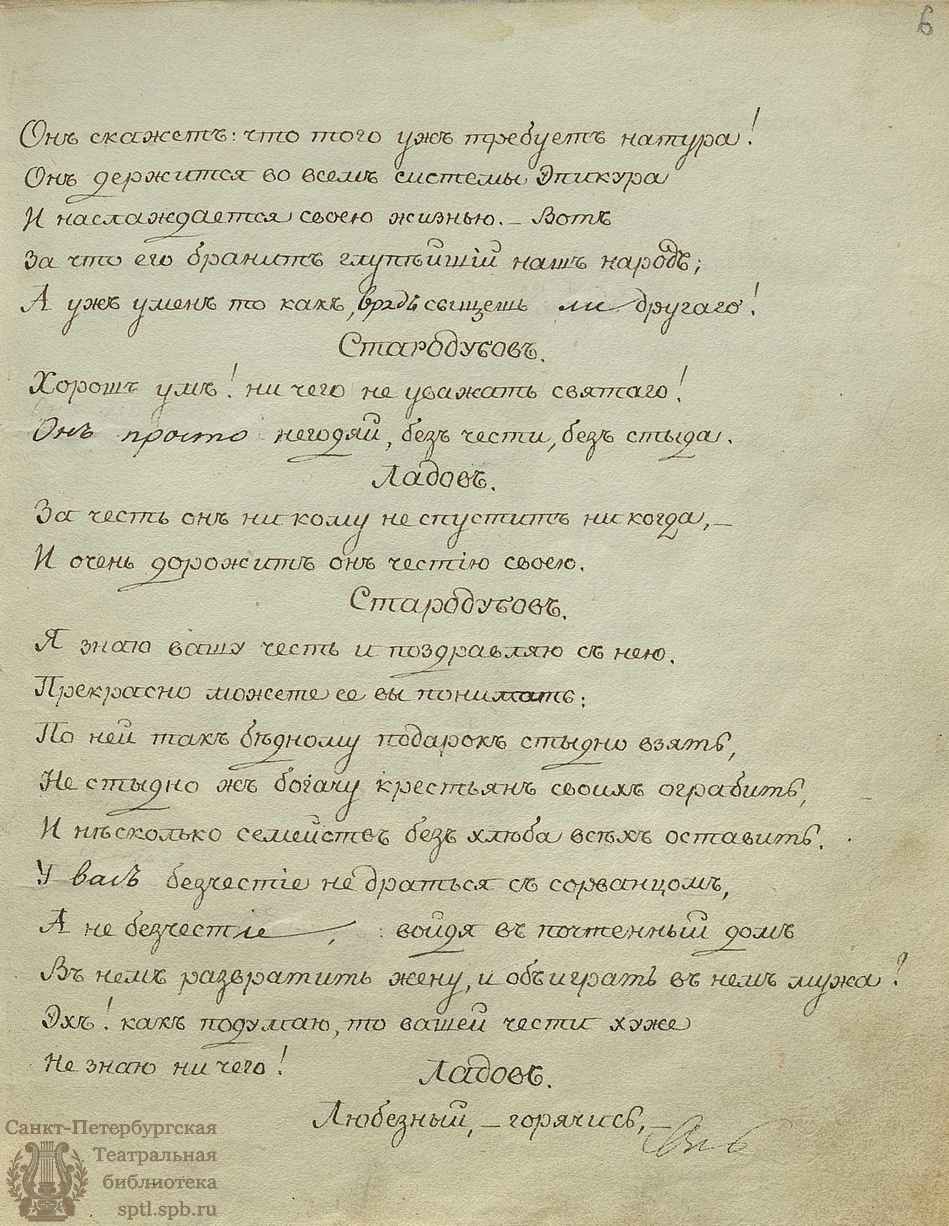 6
Онъ скажетъ: что того ужъ требуетъ натура!
Онъ держится во всемъ системы Эпикура
И наслаждается своею жизнью. – Вотъ
За что его бранитъ глупѣйшій нашъ народъ;
А ужъ уменъ то какъ, врядъ сыщешь ли другаго!
Стародубовъ.
Хорошъ умъ! ни чего не уважать святаго!
Онъ просто негодяй, безъ чести, безъ стыда.
Ладовъ.
За честь онъ ни кому не спуститъ ни когда, –
И очень дорожитъ онъ честію своею.
Стародубовъ.
Я знаю вашу честь и поздравляю съ нею.
Прекрасно можете ее вы понимать:
По ней такъ бѣдному подарокъ стыдно взять,
Не стыдно жъ богачу крестьянъ своихъ ограбить,
И нѣсколько семействъ безъ хлѣба всѣхъ оставить.
У васъ безчестіе не драться съ сорванцомъ,
А не безчестіе, войдя въ почтенный домъ
Въ немъ развратить жену, и объиграть въ немъ мужа?
Эхъ! какъ подумаю, то вашей чести хуже
Не знаю ни чего!
Ладовъ.
Любезный, – горячись, –
Санкт-Петербургская
Театральная
библиотека
sptl.spb.ru